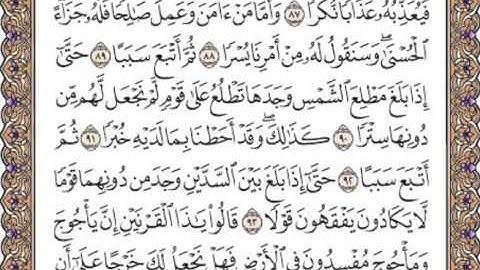 فَيُعَذِّبُهُۥ عَذَابًا نُّكْرًا ٨٧ وَأَمَّا مَنْ ءَامَنَ وَعَمِلَ صَٰلِحًا فَلَهُۥ جَزَآءً
ٱلْحُسْنَىٰ ۖ وَسَنَقُولُ لَهُۥ مِنْ أَمْرِنَا يُسْرًا ٨٨ ثُمَّ أَتْبَعَ سَبَبًا ٨٩ حَتَّىٰٓ
إِذَا بَلَغَ مَطْلِعَ ٱلشَّمْسِ وَجَدَهَا تَطْلُعُ عَلَىٰ قَوْمٍ لَّمْ نَجْعَل لَّهُم مِّن
دُونِهَا سِتْرًا ٩٠ كَذَٰلِكَ ۖ وَقَدْ أَحَطْنَا بِمَا لَدَيْهِ خُبْرًا ٩١ ثُمَّ
أَتْبَعَ سَبَبًا ٩٢ حَتَّىٰٓ إِذَا بَلَغَ بَيْنَ ٱلسَّدَّيْنِ وَجَدَ مِن دُونِهِمَا قَوْمًا
لَّا يَكَادُونَ يَفْقَهُونَ قَوْلًا ٩٣ قَالُوا۟ يَٰذَا ٱلْقَرْنَيْنِ إِنَّ يَأْجُوجَ
وَمَأْجُوجَ مُفْسِدُونَ فِى ٱلْأَرْضِ فَهَلْ نَجْعَلُ لَكَ خَرْجًا عَلَىٰٓ أَن